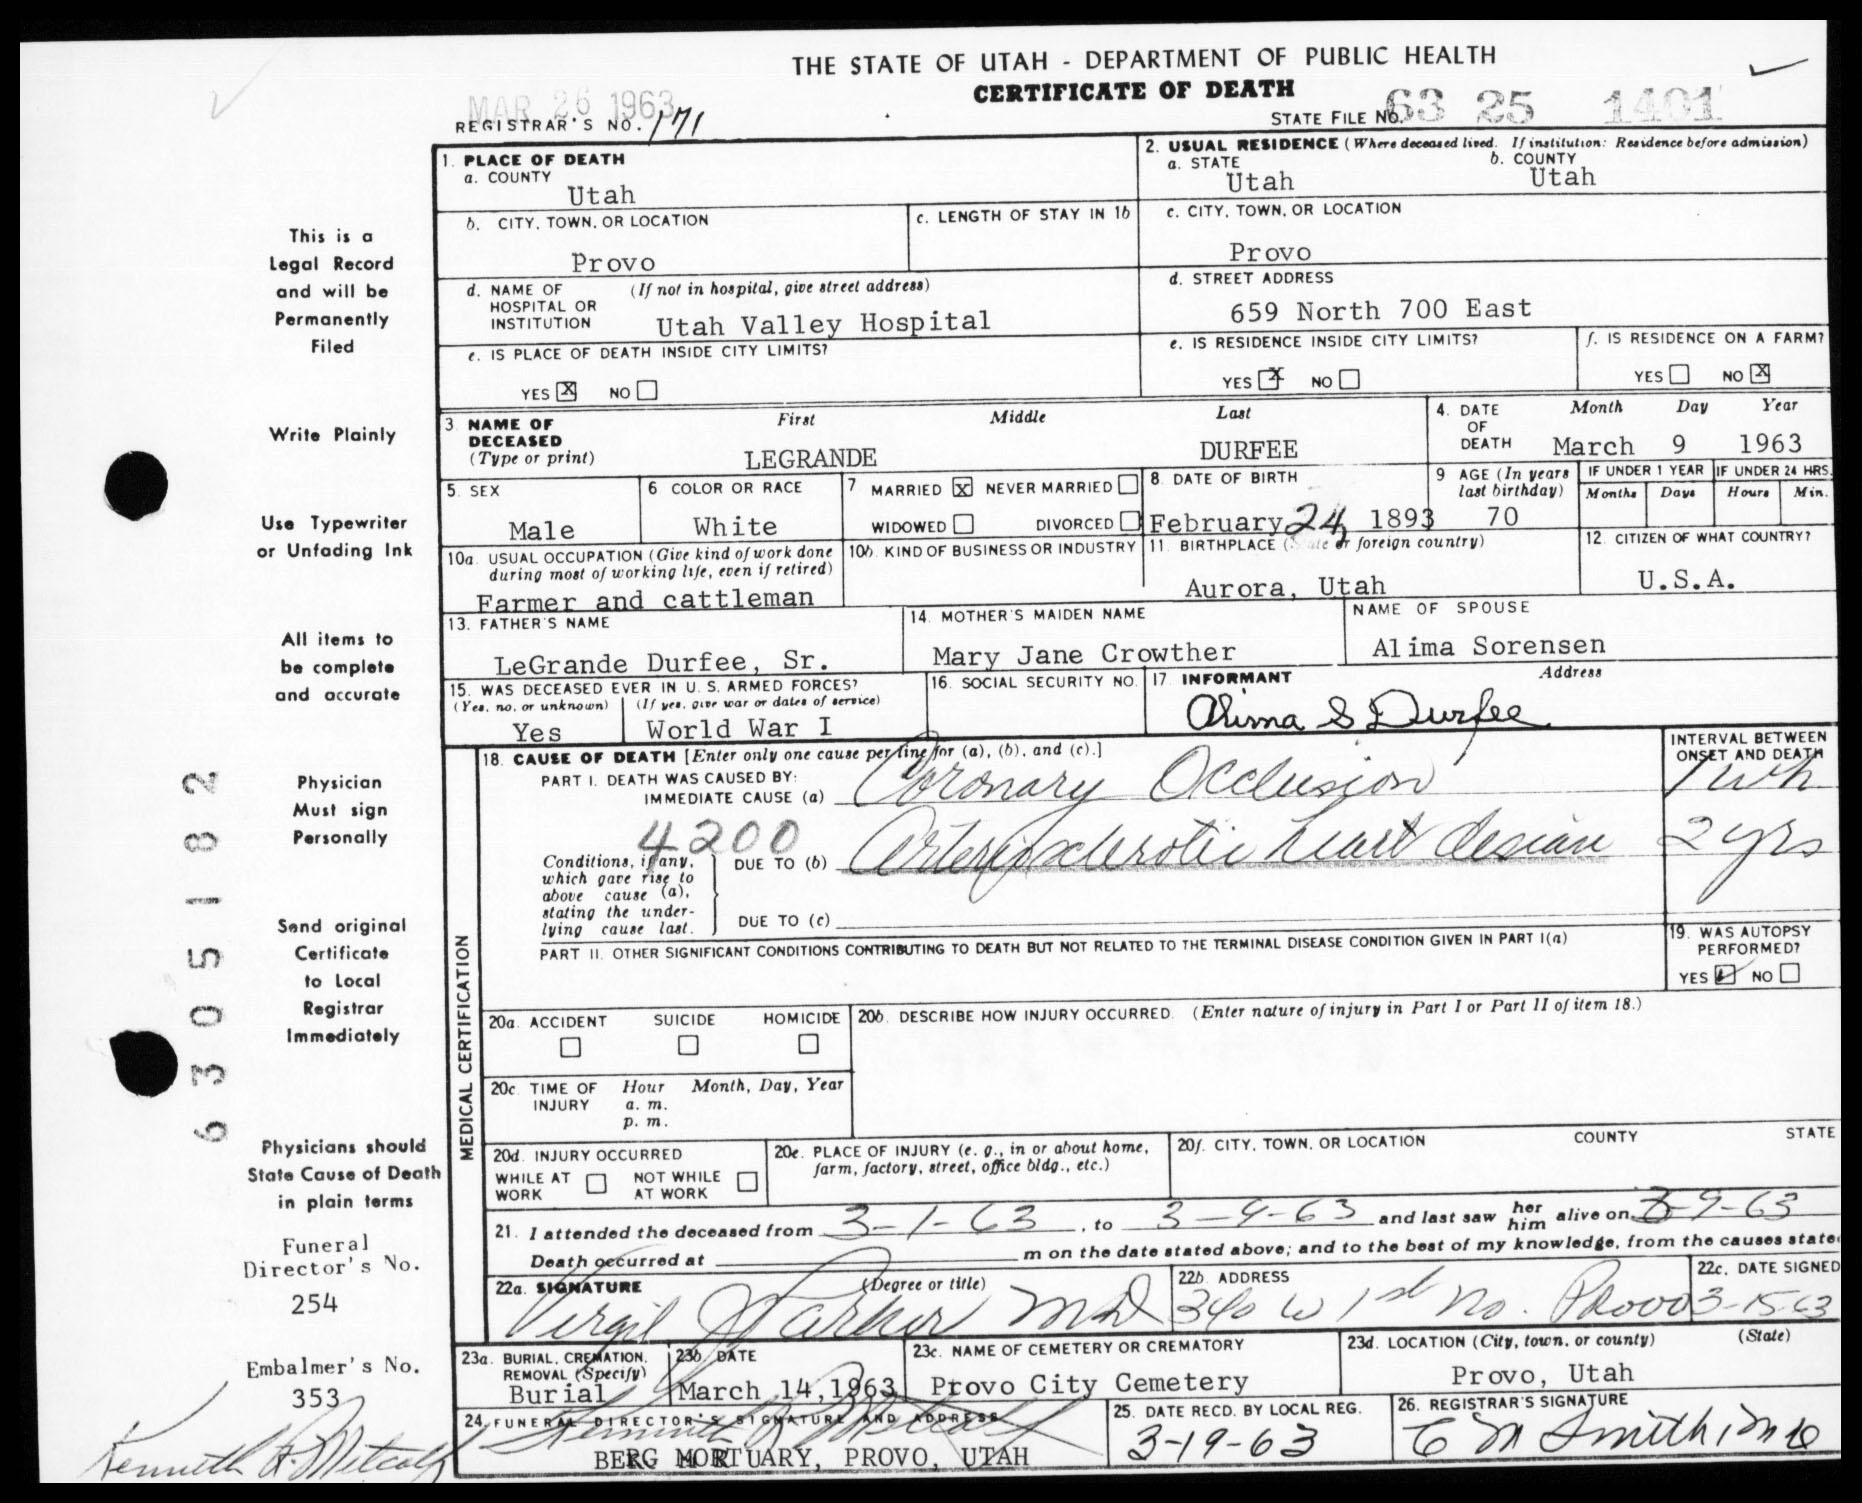 THE STATE OF UTAH - DEPARTMENT OF PUBLIC HEALTH
CERTIFICATE OF DEATH
MAR 26 1963
REGISTRAR'S NO. 171
STATE FILE NO. 63 25 1401
1. PLACE OF DEATH
a. COUNTY
Utah
2. USUAL RESIDENCE (Where deceased lived. If institution: Residence before admission)
a. STATE b. COUNTY
Utah Utah
b. CITY, TOWN, OR LOCATION
Provo
c. LENGTH OF STAY IN 1b
c. CITY, TOWN, OR LOCATION
Provo
d. NAME OF HOSPITAL OR INSTITUTION (If not in hospital, give street address)
Utah Valley Hospital
d. STREET ADDRESS
659 North 700 East
e. IS PLACE OF DEATH INSIDE CITY LIMITS?
YES X NO
e. IS RESIDENCE INSIDE CITY LIMITS?
YES X NO
f. IS RESIDENCE ON A FARM?
YES NO X
3. NAME OF DECEASED (Type or print)
First Middle Last
LEGRANDE DURFEE
4. DATE OF DEATH Month Day Year
March 9 1963
5. SEX
Male
6 COLOR OR RACE
White
7 MARRIED X NEVER MARRIED
WIDOWED DIVORCED
8. DATE OF BIRTH
February 24, 1893
9 AGE (In years last birthday)
70
IF UNDER 1 YEAR
Months Days
IF UNDER 24 HRS.
Hours Min.
10a. USUAL OCCUPATION (Give kind of work done during most of working life, even if retired)
Farmer and cattleman
10b. KIND OF BUSINESS OR INDUSTRY
11. BIRTHPLACE (State or foreign country)
Aurora, Utah
12. CITIZEN OF WHAT COUNTRY?
U.S.A.
13. FATHER'S NAME
LeGrande Durfee, Sr.
14. MOTHER'S MAIDEN NAME
Mary Jane Crowther
NAME OF SPOUSE
Alima Sorensen
15. WAS DECEASED EVER IN U. S. ARMED FORCES?
(Yes, no, or unknown) (If yes, give war or dates of service)
Yes World War I
16. SOCIAL SECURITY NO.
17. INFORMANT Address
Alima S Durfee
18. CAUSE OF DEATH [Enter only one cause per line for (a), (b), and (c).]
PART I. DEATH WAS CAUSED BY:
IMMEDIATE CAUSE (a) Coronary Occlusion
INTERVAL BETWEEN ONSET AND DEATH
1 wk
4200
Conditions, if any, which gave rise to above cause (a), stating the underlying cause last.
DUE TO (b) Arteriosclerotic heart disease 2 yrs
DUE TO (c)
PART II. OTHER SIGNIFICANT CONDITIONS CONTRIBUTING TO DEATH BUT NOT RELATED TO THE TERMINAL DISEASE CONDITION GIVEN IN PART I(a)
19. WAS AUTOPSY PERFORMED?
YES ✓ NO
MEDICAL CERTIFICATION
20a. ACCIDENT SUICIDE HOMICIDE
20b. DESCRIBE HOW INJURY OCCURRED. (Enter nature of injury in Part I or Part II of item 18.)
20c. TIME OF INJURY Hour Month, Day, Year
a. m.
p. m.
20d. INJURY OCCURRED
WHILE AT WORK NOT WHILE AT WORK
20e. PLACE OF INJURY (e. g., in or about home, farm, factory, street, office bldg., etc.)
20f. CITY, TOWN, OR LOCATION COUNTY STATE
21. I attended the deceased from 3-1-63, to 3-9-63 and last saw her him alive on 3-9-63
Death occurred at m on the date stated above; and to the best of my knowledge, from the causes state
22a. SIGNATURE (Degree or title)
Virgil Parker MD
22b. ADDRESS
340 W 1st No. Provo
22c. DATE SIGNED
3-15-63
23a. BURIAL, CREMATION, REMOVAL (Specify)
Burial
23b. DATE
March 14, 1963
23c. NAME OF CEMETERY OR CREMATORY
Provo City Cemetery
23d. LOCATION (City, town, or county) (State)
Provo, Utah
24. FUNERAL DIRECTOR'S SIGNATURE AND ADDRESS
Kenneth R Metcalf
BERG MORTUARY, PROVO, UTAH
25. DATE RECD. BY LOCAL REG.
3-19-63
26. REGISTRAR'S SIGNATURE
C M Smith, MD
This is a
Legal Record
and will be
Permanently
Filed
Write Plainly
Use Typewriter
or Unfading Ink
All items to
be complete
and accurate
Physician
Must sign
Personally
Send original
Certificate
to Local
Registrar
Immediately
Physicians should
State Cause of Death
in plain terms
Funeral
Director's No.
254
Embalmer's No.
353
Kenneth R Metcalf
6305182